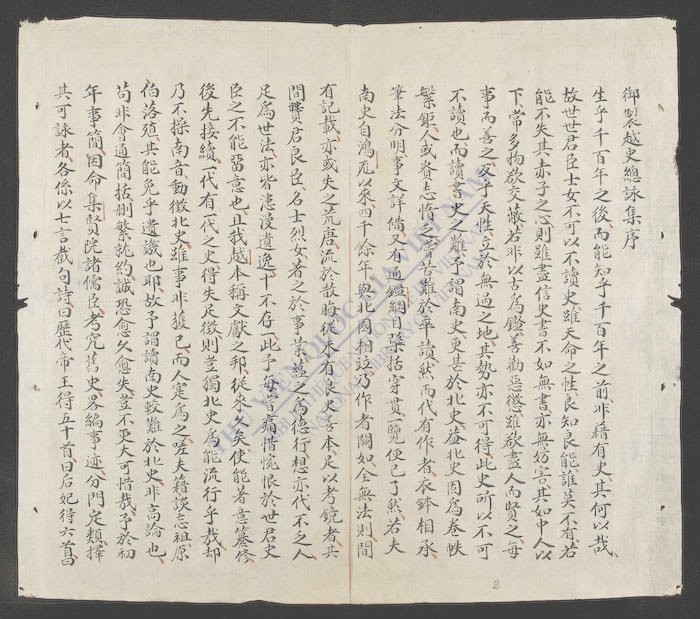 御製越史總詠集序
生乎千百年之後而能知乎千百年之前非藉有史其何以哉
故世世君臣士女不可以不讀史雖天命之性良知良能誰莫不有若
能不失其赤子之心則雖盡信史書不如無書亦無妨害其如中人以
下常多物欲交蔽若非以古為鑑善勸惡懲雖欲盡人而賢之每
事而善之以乎天性立於無過之地其勢亦不可得此史所以不可
不讀也而讀書史之難予謂南史更甚於北史蓋北史因為卷帙
繁鉅人或眷志惰之者苦難於卒讀然而代有作者衣鉢相承
筆法分明事文詳備又有通鑑綱目櫽括穿貫一覽便已了然若夫
南史自鴻厖以來四千餘年與北國相竝乃作者闕如全無法則間
有記載亦或失之荒唐流於散略從未有良史善本足以考鏡者其
間聖君良臣名士烈女著之於事業蘊之為德行想亦代不乏人
足為世法亦皆漶漫遺逸十不存一此予每嘗痛惜惋恨於世君史
臣之不能留意也且我越本稱文獻之邦從來久矣使能著意篹修
後先接續一代有一代之史得失足徵則豈獨北史為能流行乎哉却
乃不採南音動徵北史雖事非獲已而人寔為之嗟夫籍談忘祖原
伯落殖其能免乎遺譏也耶故予謂讀南史較難於北史非高論也
苟非會通簡括刪繁就約誠恐愈久愈失豈不更大可惜哉予於初
年事簡因命集賢院諸儒臣考究舊史畧編事迹分門定類擇
其可詠者各係以七言截句詩曰歷代帝王得五十首曰后妃得六首曰
2
VIỆN NATIONAL LIBRARY OF VIETNAM